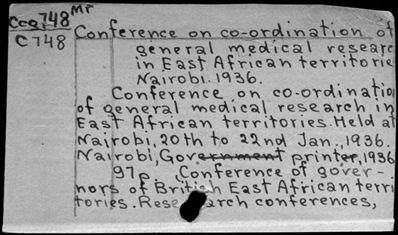 CCQ.748 Mr
C748 Conference on co-ordination of
general medical researc
in East African territorie
Nairobi. 1936.
Conference on co-ordination
of general medical research in
East African territories. Held at
Nairobi, 20th to 22nd Jan., 1936.
Nairobi, Government printer, 1936
97p. Conference of gover-
nors of British East African terri
tories. Research conferences,